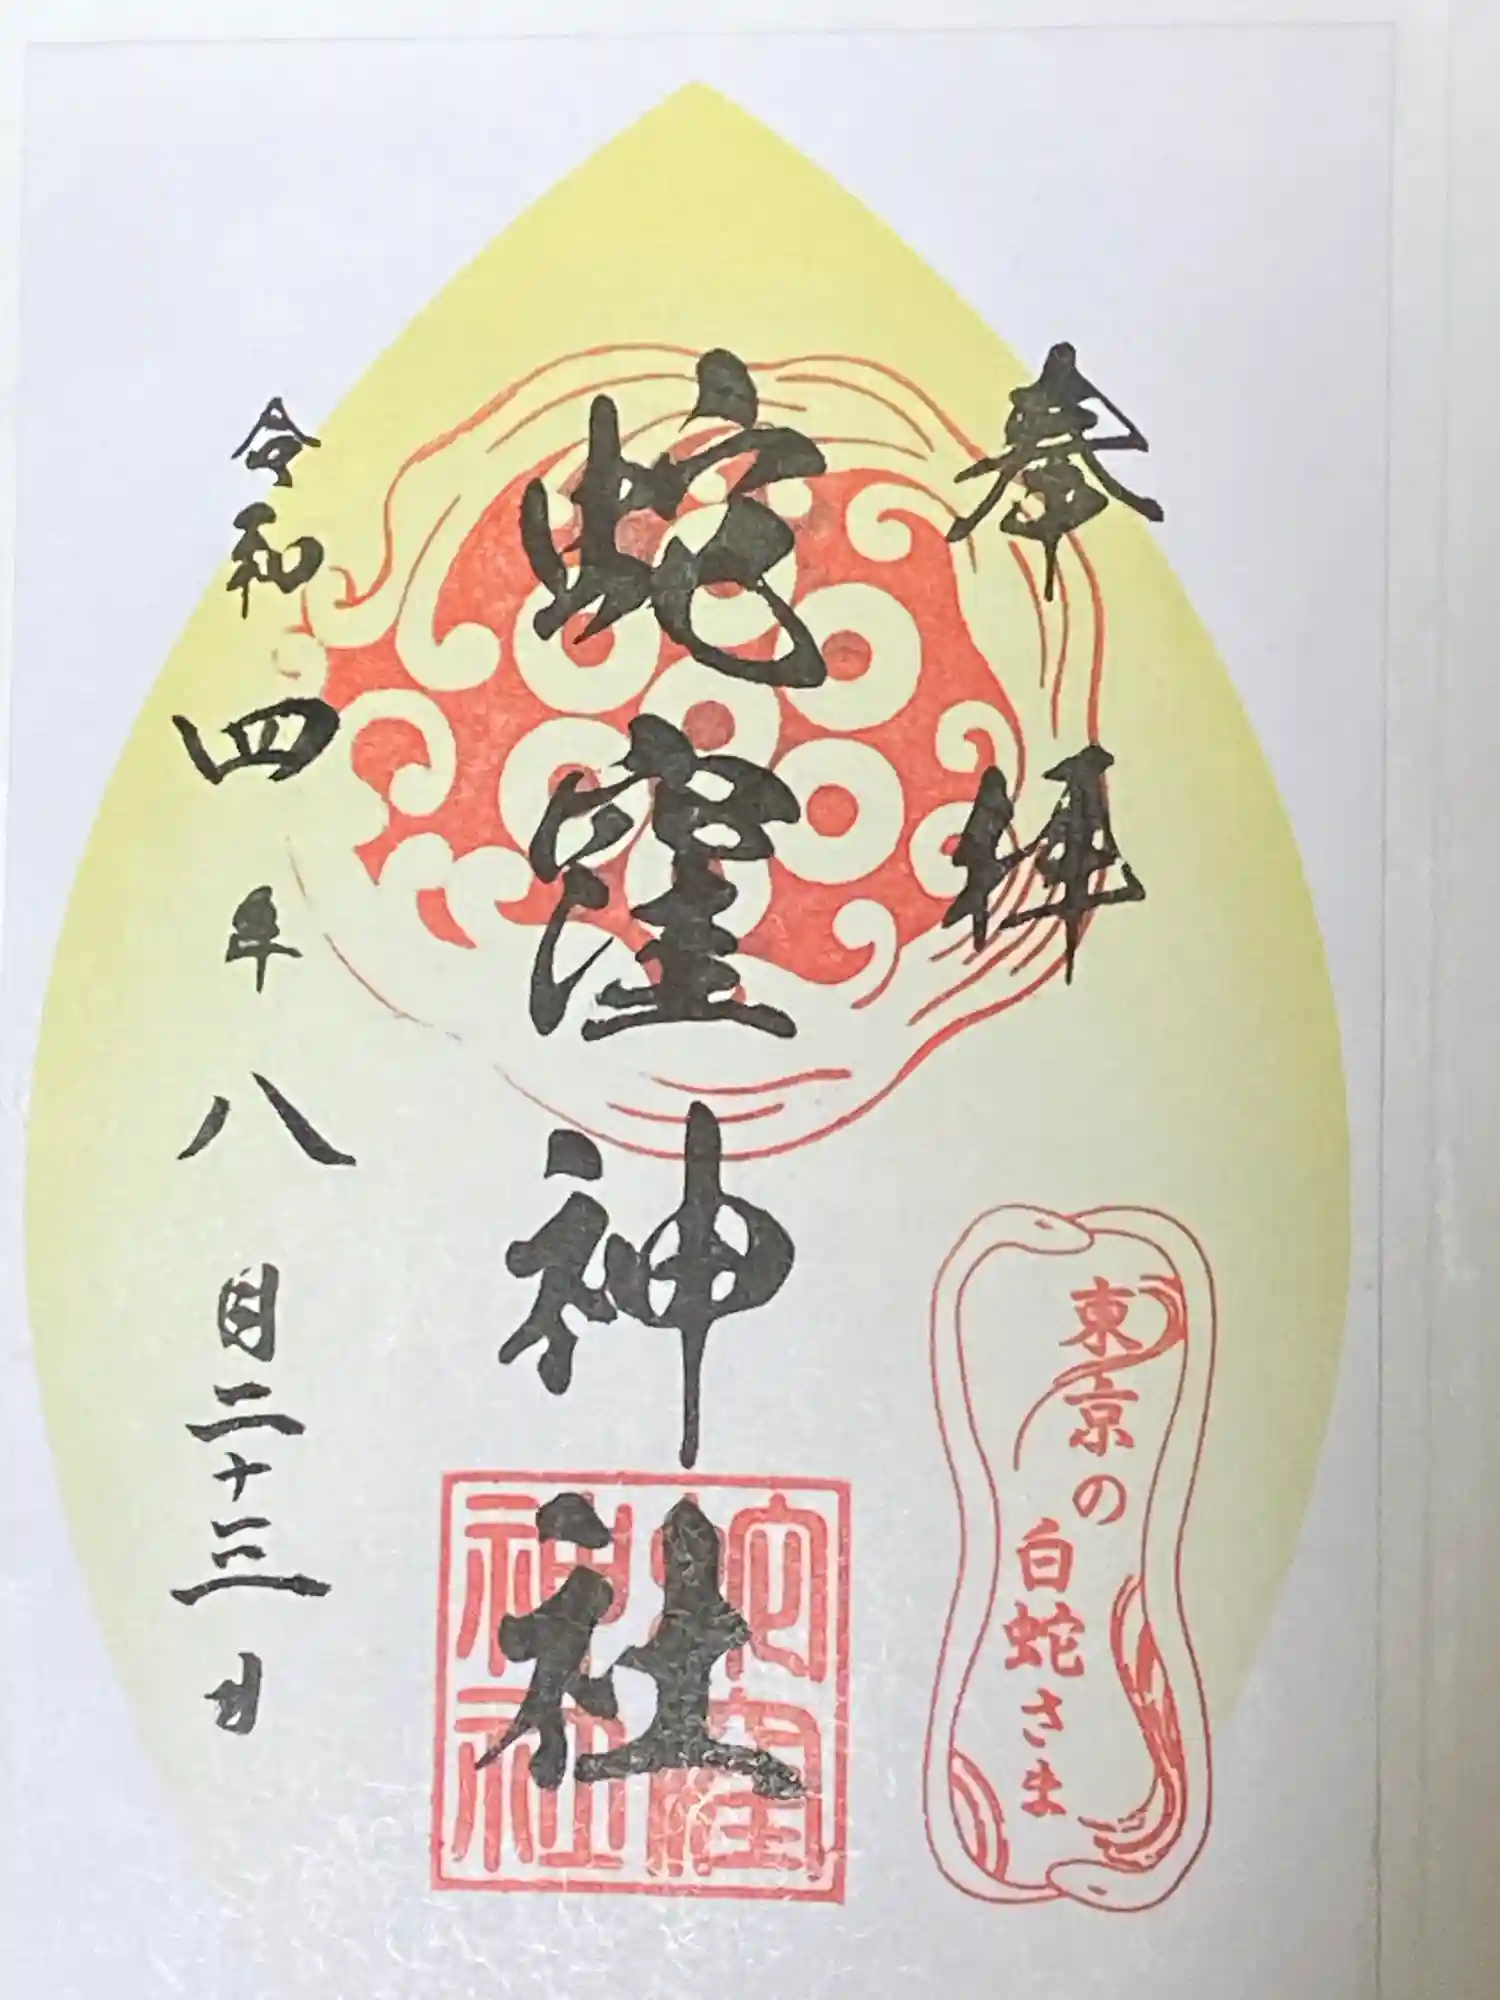 奉拝
蛇窪神社
令和四年八月二十三日
東京の
白蛇さま
蛇窪
神社